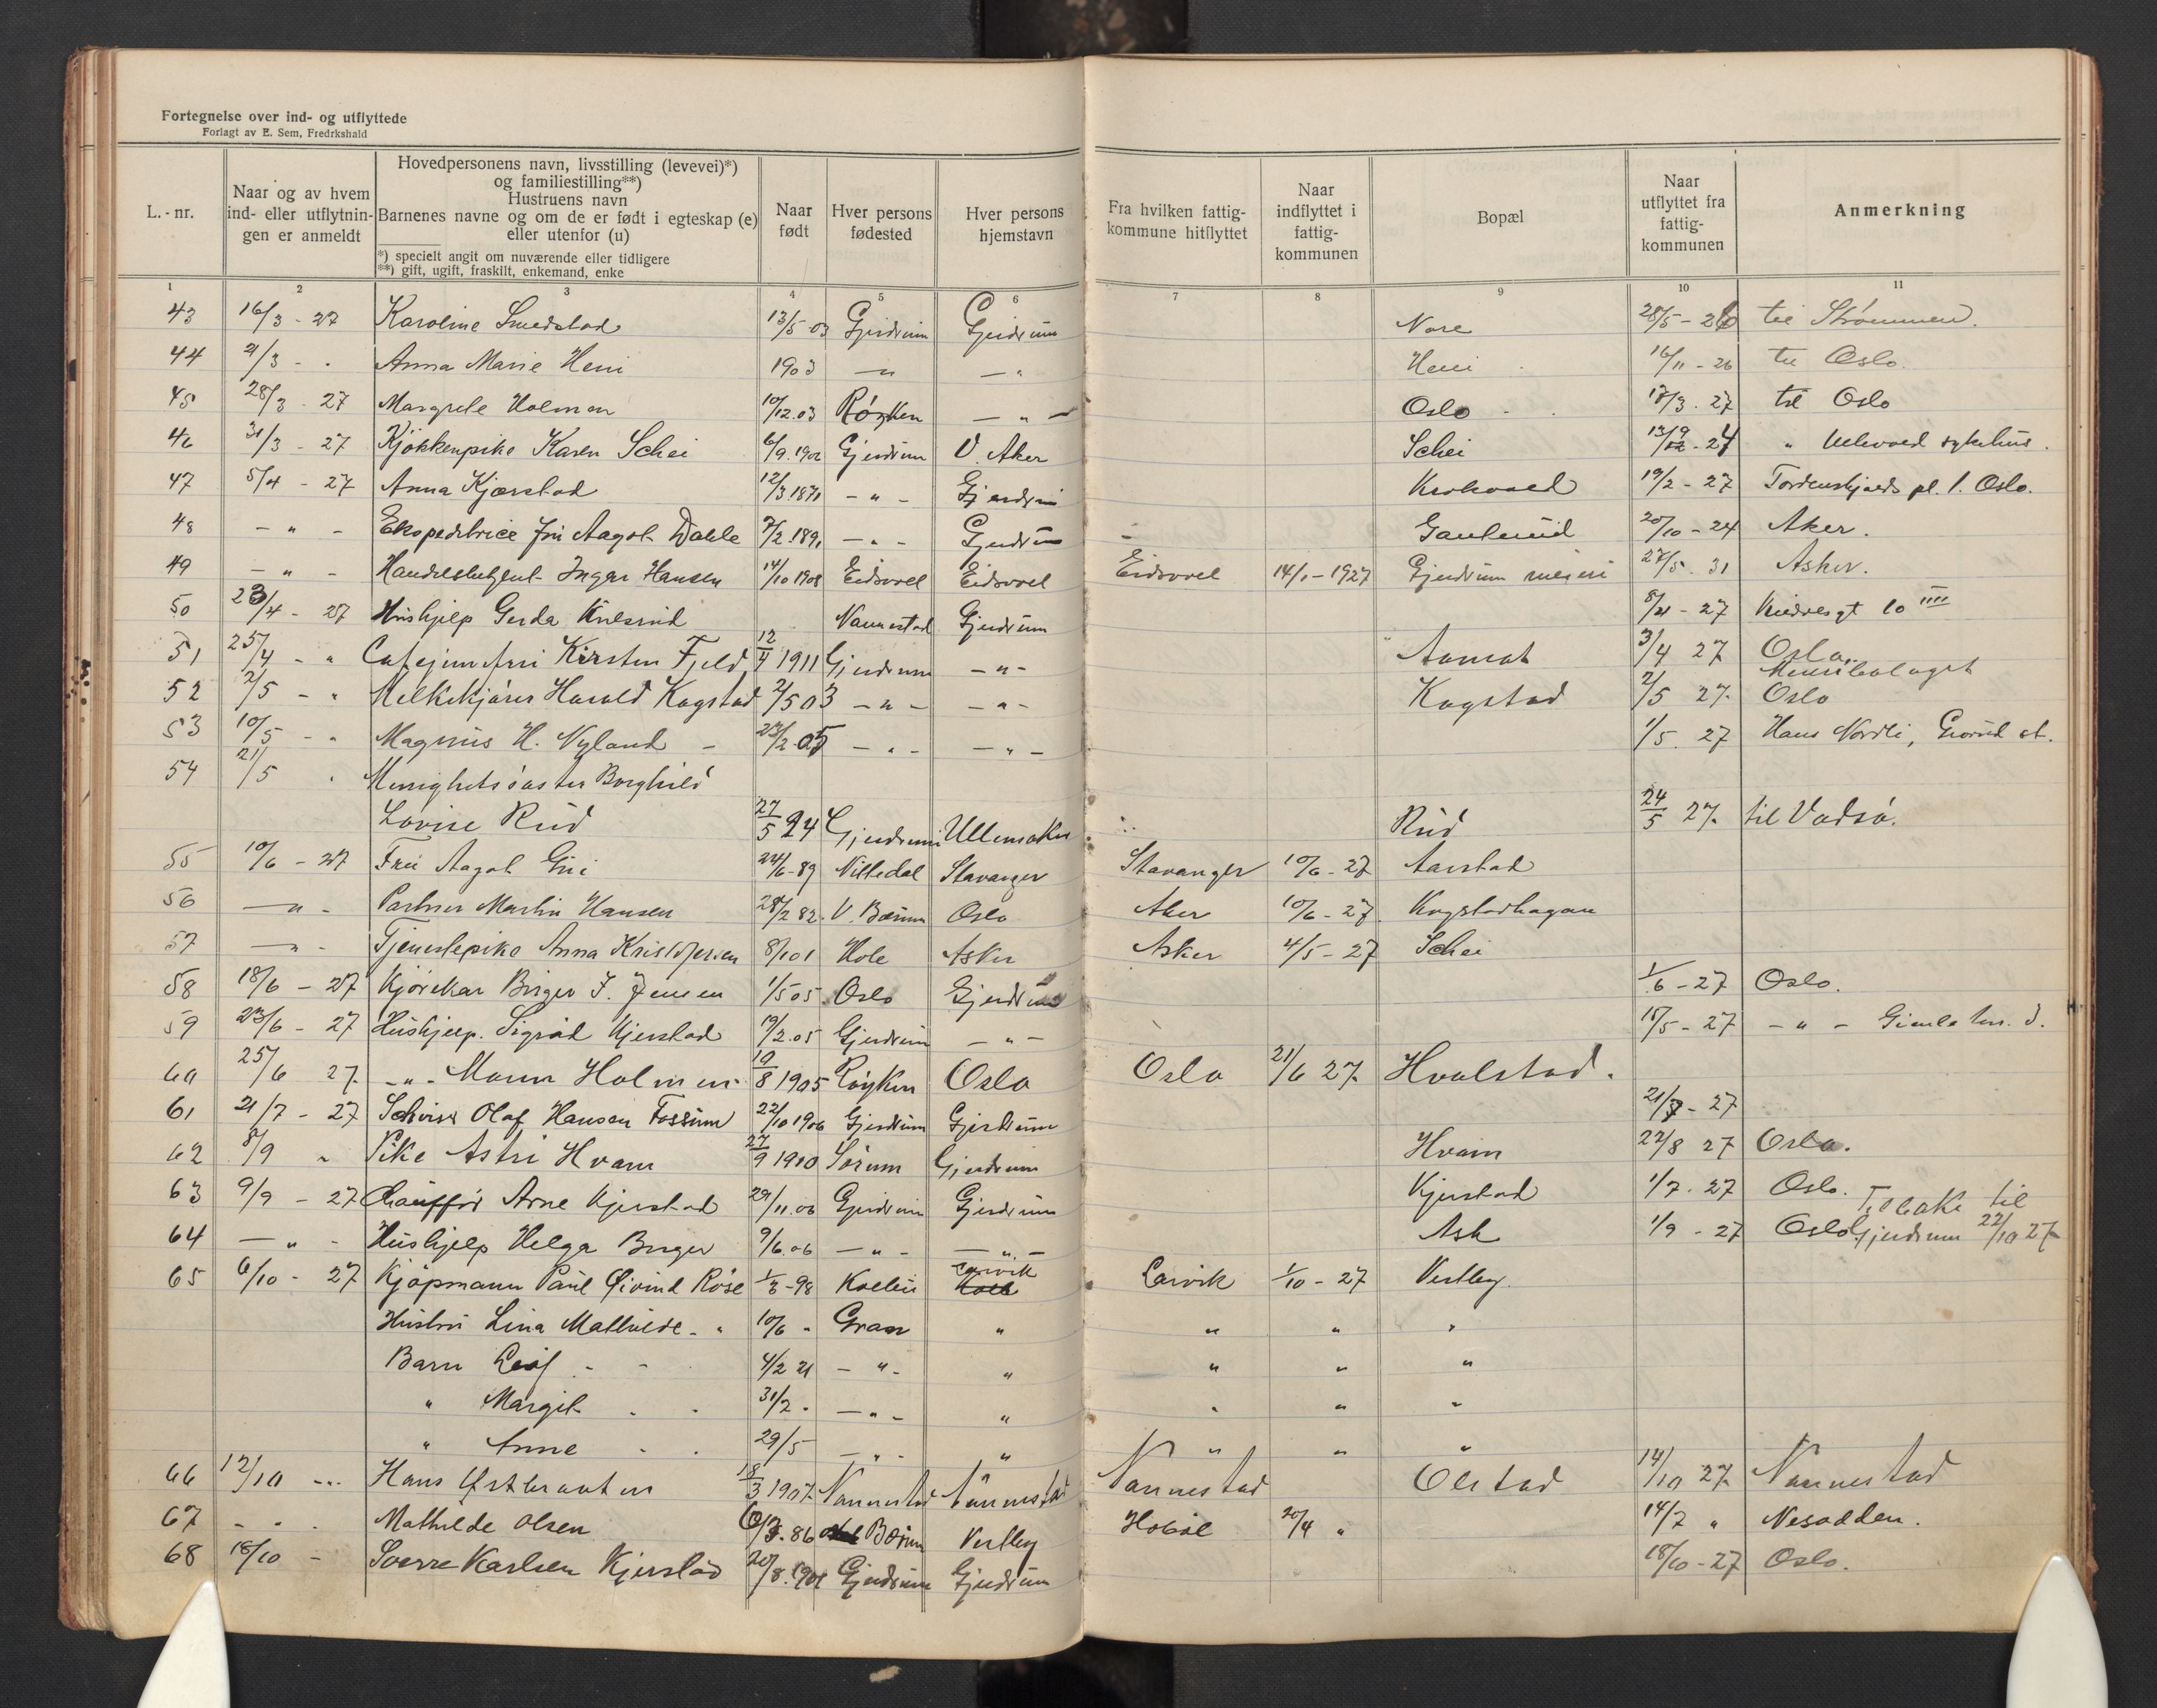 Fortegnelse over ind- og utflyttede
Forlagt av E. Sem, Fredrkshald
L.-nr.
Naar og av hvem ind- eller utflytnin- gen er anmeldt
Hovedpersonens navn, livsstilling (levevei)*)
og familiestilling**)
Hustruens navn
Barnenes navne og om de er født i egteskap (e)
eller utenfor (u)
*) specielt angit om nuværende eller tidligere
**) gift, ugift, fraskilt, enkemand, enke
Naar født
Hver persons fødested
Hver persons hjemstavn
Fra hvilken fattig- kommune hitflyttet
Naar indflyttet i fattig- kommunen
Bopæl
Naar utflyttet fra fattig- kommunen
Anmerkning
1 2 3 4 5 6 7 8 9 10 11
43 16/3 - 27 Karoline Smedstad 13/5-03 Gjerdrum Gjerdrum 28/5 - 26 til Strømmen.
44 21/3 - . Anna Marie Heni 1903 — " — " Heni 16/11 - 26 til Oslo.
45 28/3 . 27 Margrete Holmen 10/12.03 Røyken — " — Oslo 17/3 . 27 til Oslo
46 31/3 - 27 Kjøkkenpike Karen Schei 6/9.1902 Gjerdrum V. Aker Schei 13/9 - 24 " Ullevaal sykehus.
47 5/4 - 27 Anna Kjærstad 12/3 1871 — " — Gjerdrum Krokvold 19/2 - 27 Tordenskjolds pl. 1. Oslo.
48 — " — Ekspeditrice Aagot Dahle 7/2.1891 — " — Gjerdrum 20/10 - 24 Aker.
49 — " — Ingar Hansen 14/10 1908 Eidsvol Eidsvol Eidsvol 14/1 - 1927 Gjerdrum meieri 27/5 . 31 Asker.
50 23/4 - 27 Hushjelp Gerda Nannestad Gjerdrum 27
51 25/4 - " Kirsten Fjeld 12/4 1911 Gjerdrum — " — Aamot 3/4 27 Oslo.
52 2/5 - " Melkekjører Harald Kogstad 2/5 03 — " — — " — Kogstad 2/5 27. Oslo
53 10/5 - " Magnus H. Nyland 23/2.05 — " — — " — 1/5. 27 Hans Nordli, Grorud st.
54 21/5 " Menighetsøster Borghild
Lovise Rud 27/5 94 Gjerdrum Ullensaker Rud 24/5 27. til Vadsø.
55 10/6 - 27 Fru Aagot 24/6-89 Nittedal Stavanger Stavanger 10/6 - 27 Aarstad
56 — " — Martin Hansen 28/2 82. V. Bærum Oslo Aker 10/6 - 27 Kogstadhagan
57 — " — Tjenestepike Anna Kristofersen 8/10 1 Hole Asker Asker 4/5 - 27 Schei
58 18/6 - 27 Kjørekar Birger J. Jensen 1/5 05 Oslo Gjerdrum 1/6 - 27 Oslo.
59 23/6 - 27 Hushjelp. Sigrid Kjerstad 19/2.05 Gjerdrum — " — 15/5 - 27 — " —
60 25/6 27. — " — Holmen 10/8 1905 Røyken Oslo Oslo 21/6 27. Hvalstad.
61 21/7 - 27 Olaf Hansen Fossum 22/10 1906 Gjerdrum Gjerdrum 21/7 - 27
62 8/9 " Pike Astri Hvam 27/9 1910 Sørum Gjerdrum Hvam 22/8 27 Oslo.
63 9/9 - 27 Chauffør Arne Kjerstad 29/11.06 Gjerdrum Gjerdrum Kjerstad 1/7. 27 Oslo.
Tilbake til
64 — " — Hushjelp Helga Berger 9/6.06 — " — — " — Ask 1/9 - 27 Oslo Gjerdrum 22/10 27
65 6/10 - 27 Kjøpmann Paul Øivind Røse 1/3-98 Larvik Larvik 1/10 - 27 Vestby.
Hustru Lina Mathilde - " 10/6 - Gran " " " "
Barn Leif - - 4/2 21 — " — " " " "
" Margit 31/2 . — " — " " " "
" Anne 29/5 — " — " " " "
66 12/10 - Hans 18/3 1907. Nannestad Nannestad Nannestad Olstad 14/10 27. Nannestad
67 - . . Mathilde Olsen 86 Bærum Vestby Hobøl 20/4 " 14/7 " Nesodden.
68 18/10 - Sverre Karlsen Kjerstad 20/8.1901 Gjerdrum Gjerdrum 18/10 - 27 Oslo.